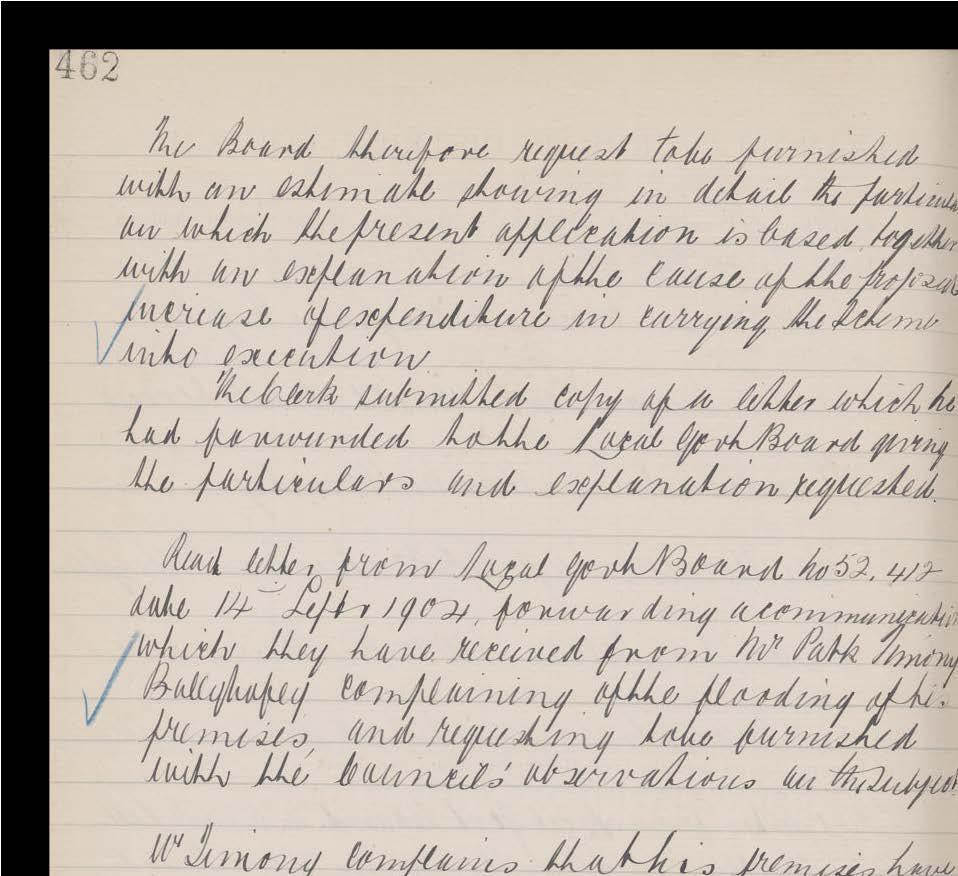 462
The Board therefore request to be furnished
with an estimate showing in detail the particula
on which the present application is based, together
with an explanation of the cause of the propose
increase of expenditure in carrying the Scheme
into execution
The Clerk submitted copy of a letter which he
had forwarded to the Local Govt Board giving
the particulars and explanation requested.
Read letter from Local Govt Board No 52,412
date 14th Septr 1904, forwarding a communicatio
which they have received from Mr Patk Timony
complaining of the flooding of his
premises, and requesting to be furnished
with the Council's observations on the subject.
Mr Timony complains that his premises have